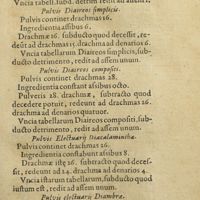 Vncia tabell. subd. detrim. redit ad assem
Pulvis Diaireos simplicis.
Pulvis continet drachmas 16.
Ingredientia assibus 6.
Drachmæ 16. subducto quod decessit, re-
deunt ad drachmas 15; drachma ad denarios 6.
Vncia tabellarum Diaireos simplicis, sub-
ducto detrimento, redit ad assem unum.
Pulvis Diaireos compositi.
Pulvis continet drachmas 28.
Ingredientia constant assibus octo.
Pulveris 28. drachmæ, subtracto quod
decedere potuit, redeunt ad drachmas 26.
drachma ad denarios quatuor.
Vncia tabellarum Diaireos compositi, sub-
ducto detrimento, redit ad assem unum.
Pulvis Electuarii Diacalaminthæ.
Pulvis continet drachmas 26.
Ingredientia constabunt assibus 8.
Drachmæ istę 26. subtracto quod deces-
sit, redeunt ad 24. drachma ad denarios 4.
Vncia istarum tabellarum, subducto quod
iustum est, redit ad assem unum.
Pulvis electuarii Diambræ.